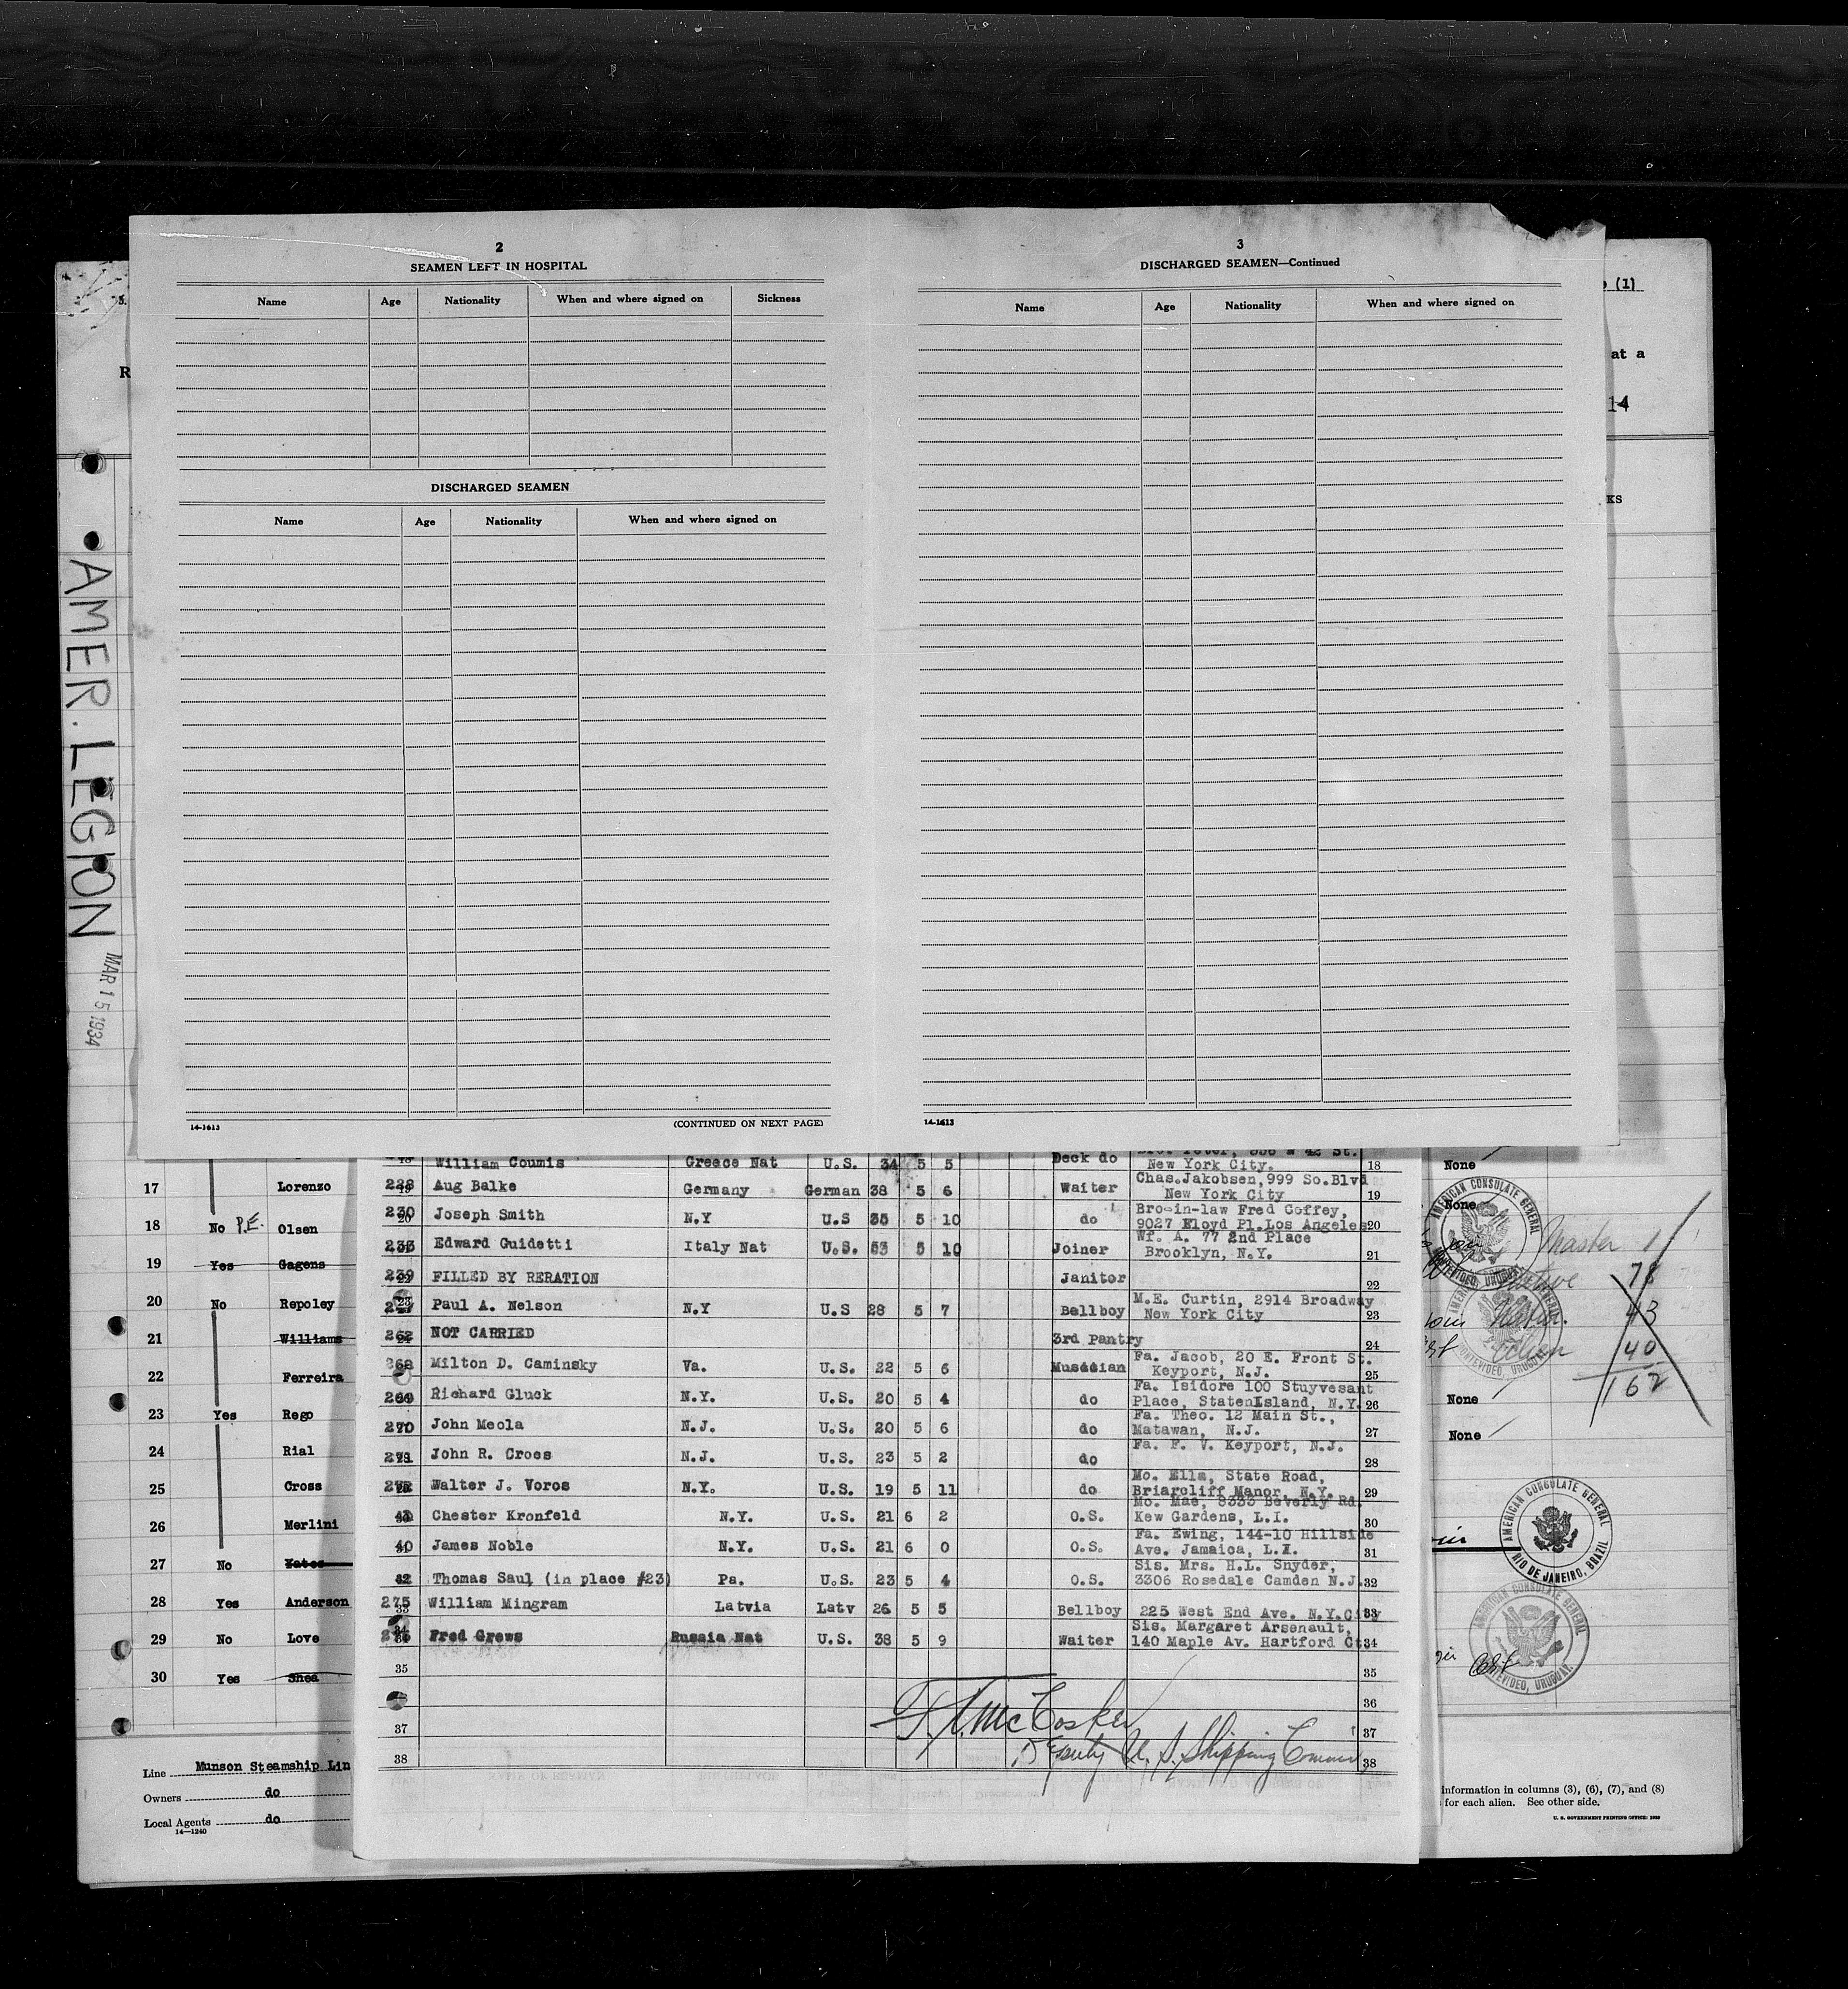 2
SEAMEN LEFT IN HOSPITAL
Name Age Nationality When and where signed on Sickness
DISCHARGED SEAMEN
Name Age Nationality When and where signed on
14-1613 (CONTINUED ON NEXT PAGE)
3
DISCHARGED SEAMEN—Continued
Name Age Nationality When and where signed on
14-1613
(1)
at a
14
KS
R
AMER. LEGION
MAR 15 1934
17 Lorenzo
18 No P.E. Olsen
19 Yes Gagens
20 No Repoley
21 Williams
22 Ferreira
23 Yes Rego
24 Rial
25 Cross
26 Merlini
27 No Yates
28 Yes Anderson
29 No Love
30 Yes Shea
Line Munson Steamship Lin
Owners do
Local Agents do
14—1240
William Coumis Greece Nat U.S. 34 5 5 Deck do
New York City. 18
Aug Balke Germany German 38 5 6 Waiter Chas.Jakobsen,999 So.Blvd
New York City 19
230 Joseph Smith N.Y U.S 35 5 10 do Bro-in-law Fred Coffey,
9027 Floyd Pl.Los Angeles 20
Edward Guidetti Italy Nat U.S. 53 5 10 Joiner Wf. A. 77 2nd Place
Brooklyn, N.Y. 21
239 FILLED BY RERATION Janitor 22
Paul A. Nelson N.Y U.S 28 5 7 Bellboy M.E. Curtin, 2914 Broadway
New York City 23
262 NOT CARRIED 3rd Pantry 24
268 Milton D. Caminsky Va. U.S. 22 5 6 Musician Fa. Jacob, 20 E. Front St.
Keyport, N.J. 25
269 Richard Gluck N.Y. U.S. 20 5 4 do Fa. Isidore 100 Stuyvesant
Place, StatenIsland, N.Y. 26
270 John Meola N.J. U.S. 20 5 6 do Fa. Theo. 12 Main St.,
Matawan, N.J. 27
271 John R. Croes N.J. U.S. 23 5 2 do Fa. F. V. Keyport, N.J.
28
272 Walter J. Voros N.Y. U.S. 19 5 11 do Mo. Ella, State Road,
Briarcliff Manor, N.Y. 29
Chester Kronfeld N.Y. U.S. 21 6 2 O.S. Mo. Mae, 8333 Beverly Rd.
Kew Gardens, L.I. 30
40 James Noble N.Y. U.S. 21 6 0 O.S. Fa. Ewing, 144-10 Hillside
Ave. Jamaica, L.I. 31
Thomas Saul (in place #23) Pa. U.S. 23 5 4 O.S. Sis. Mrs. H.L. Snyder,
3306 Rosedale Camden N.J. 32
275 William Mingram Latvia Latv 26 5 5 Bellboy 225 West End Ave. N.Y.City 33
Fred Grews Russia Nat U.S. 38 5 9 Waiter Sis. Margaret Arsenault,
140 Maple Av. Hartford Ct. 34
35 35
36
37 37
38 38
F.A. McCosker
Deputy U.S. Shipping Commr
None
None
None
None
AMERICAN CONSULATE GENERAL
MONTEVIDEO, URUGUAY.
Master 1
Native 78
Natur. 43
Alien 40
162
AMERICAN CONSULATE GENERAL
RIO DE JANEIRO, BRAZIL
AMERICAN CONSULATE GENERAL
MONTEVIDEO, URUGUAY.
information in columns (3), (6), (7), and (8)
for each alien. See other side.
U. S. GOVERNMENT PRINTING OFFICE: